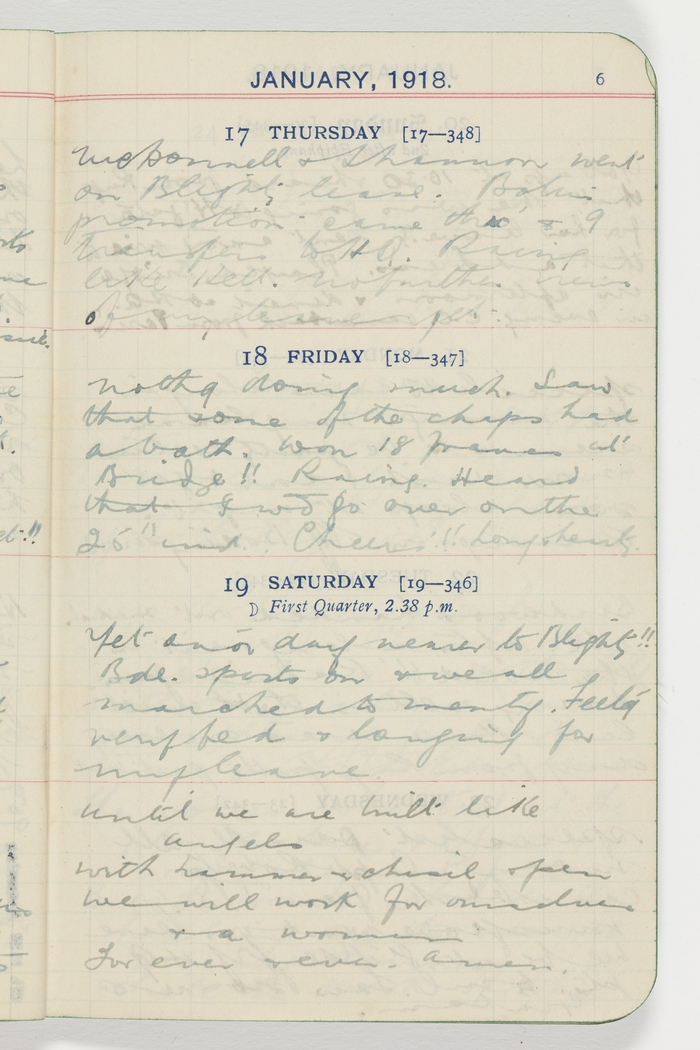 JANUARY, 1918.
6
17 THURSDAY [17—348]
McDonnell & Shannon went
on Blighty leave. Bob's
promotion came thro' & 9
transfers to HQ. Raining
like hell. No further news
of my leave yet.
18 FRIDAY [18—347]
Nothg doing much. Saw
that some of the chaps had
a bath. Won 18 francs at
Bridge!! Raing. Heard
that I wd go over on the
25" inst. Cheers!!
19 SATURDAY [19—346]
First Quarter, 2.38 p.m.
Yet anor day nearer to Blighty!!
Bde. sports on & we all
marched to menty. Feelg
very fed & longing for
my leave.
Until we are built like
angels
with hammer & chisil & pen
we will work for ourselves
& a woman
For ever & ever. Amen.